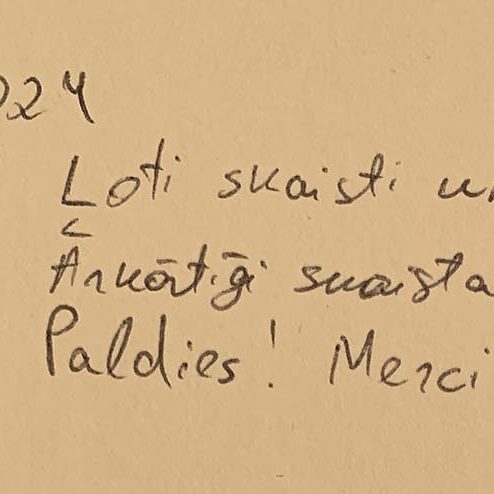 024
Ļoti skaisti un
Ārkārtīgi skaista
Paldies! Merci